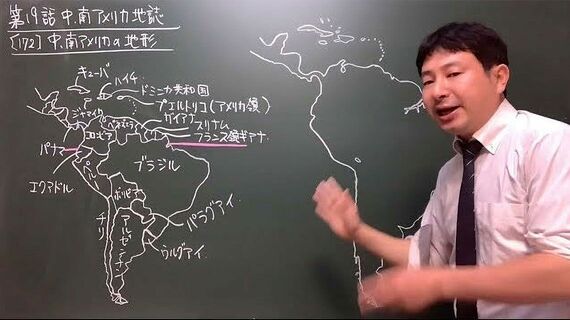 第19話 中.南アメリカ地誌
〔172〕中.南アメリカの地形
キューバ
ハイチ
ドミニカ共和国
プエルトリコ(アメリカ領)
ジャマイカ
ガイアナ
ベネズエラ
スリナム
コロンビア
フランス領ギアナ
パナマ
ブラジル
エクアドル
ペルー
ボリビア
パラグアイ
チリ
アルゼンチン
ウルグアイ